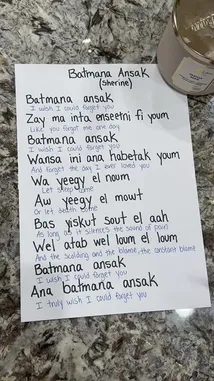 Batmana Ansak
(sherine)
Batmana ansak
I wish I could forget you
Zay ma inta enseetni fi youm
Like you forgot me one day
Batmana ansak
I wish I could forget you
Wansa ini ana habetak youm
And forget the day I ever loved you
Wa yeegy el noum
Let sleep come
Aw yeegy el mowt
Or let death come
Bas yiskut sout el aah
As long as it silences the sound of pain
Wel atab wel loum el loum
And the scolding and the blame, the constant blame
Batmana ansak
I wish I could forget you
Ana batmana ansak
I truly wish I could forget you